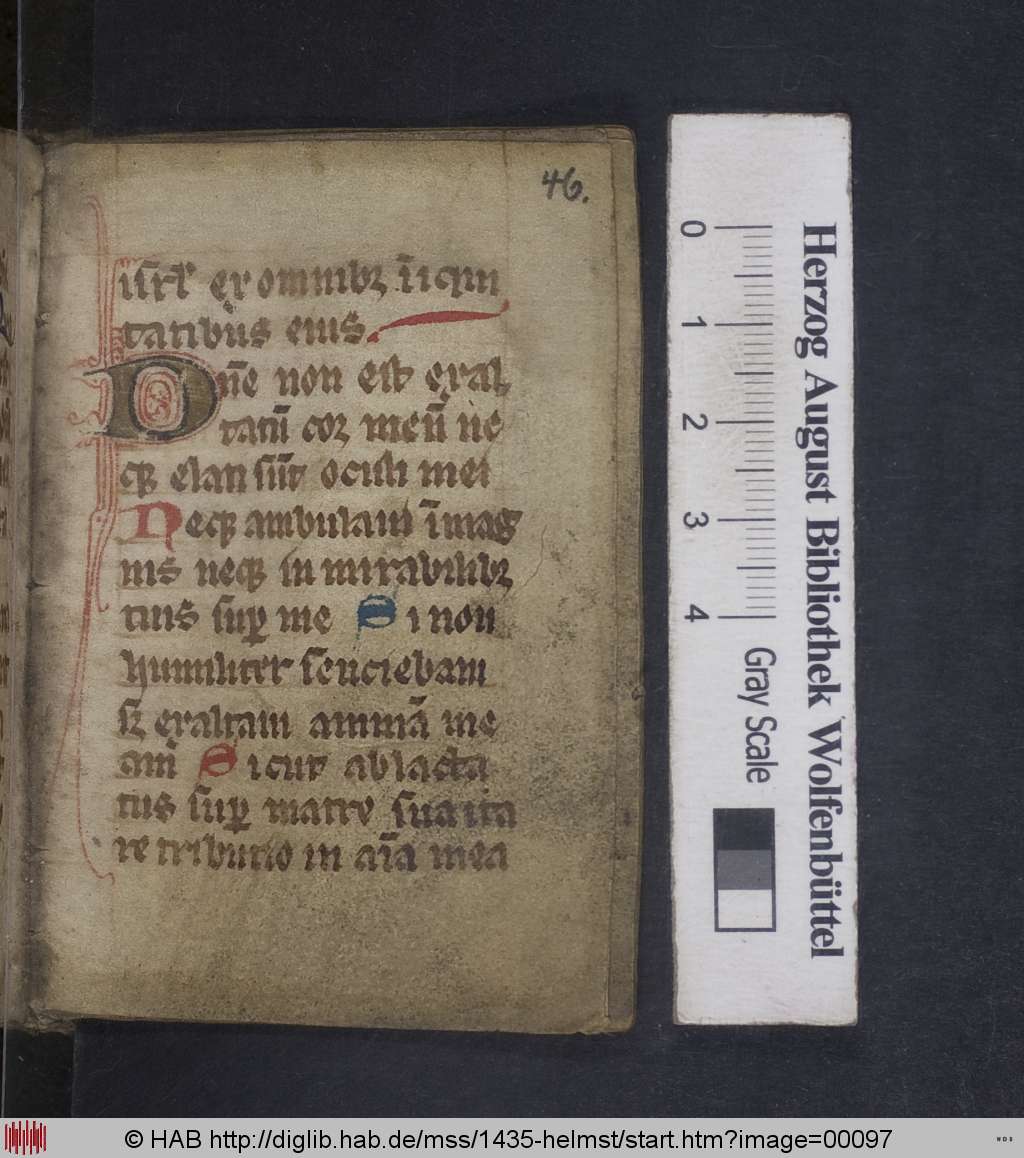 46.
isrl' ex omnibꝫ īiqui
tatibus eius.
Dn̄e non est exal
tatū coꝛ meū ne
qꝫ elati sūt oculi mei
Neqꝫ ambulaui ī mag
nis neqꝫ in mirabilibꝫ
tuis suꝑ me Si non
humiliter senciebam
sꝫ exaltaui animā me
am Sicut ablacta
tus suꝑ matre sua ita
retributio in aīa mea
Herzog August Bibliothek Wolfenbüttel
0 1 2 3 4
Gray Scale
© HAB http://diglib.hab.de/mss/1435-helmst/start.htm?image=00097